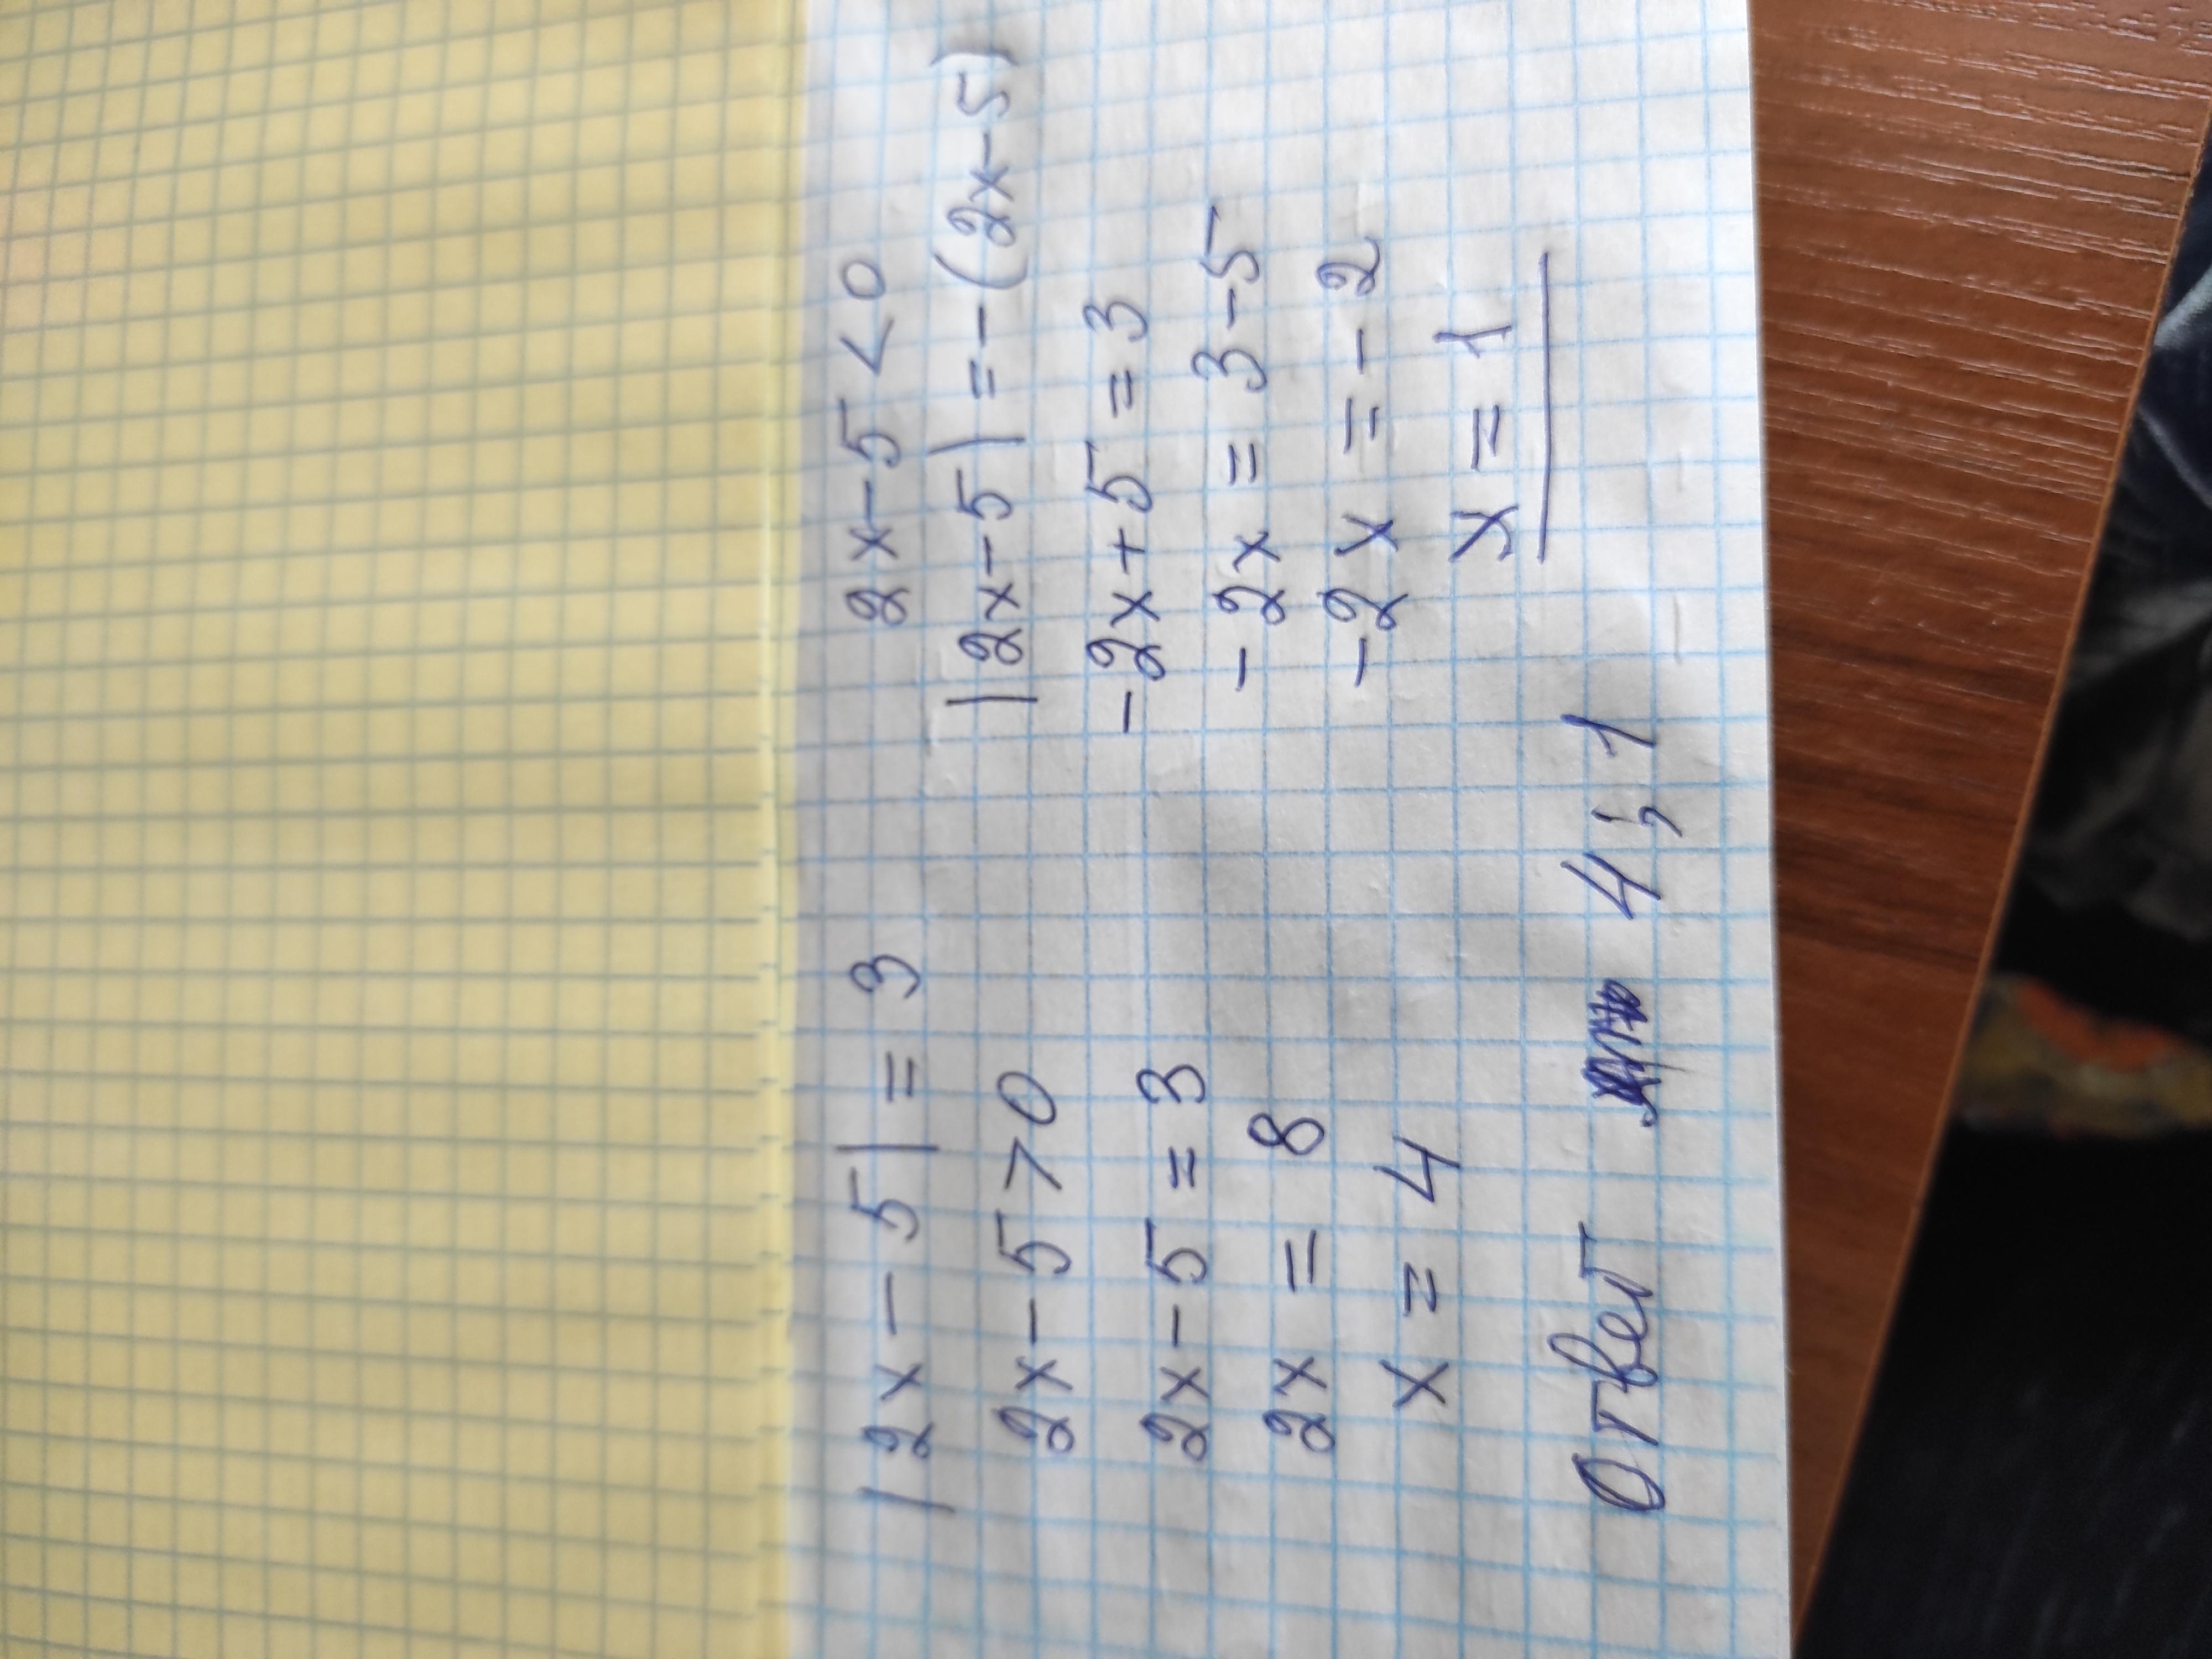 |2x - 5| = 3
2x - 5 > 0
2x - 5 = 3
2x = 8
x = 4
2x - 5 < 0
|2x - 5| = -(2x - 5)
-2x + 5 = 3
-2x = 3 - 5
-2x = -2
x = 1
Ответ 4; 1